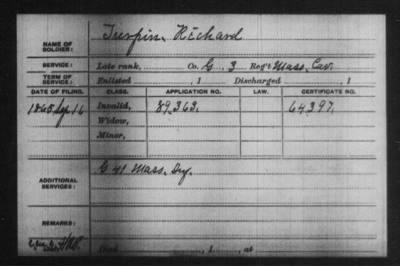 NAME OF SOLDIER: Turpin, Richard
SERVICE: Late rank, Co. G, 3 Reg't Mass. Cav.
TERM OF SERVICE: Enlisted , 1 Discharged , 1
DATE OF FILING. CLASS. APPLICATION NO. LAW. CERTIFICATE NO.
1865 Sep 16 Invalid, 89,363. 64397.
Widow,
Minor,
ADDITIONAL SERVICES: G 41 Mass. Inf.
REMARKS:
Died , 1 , at